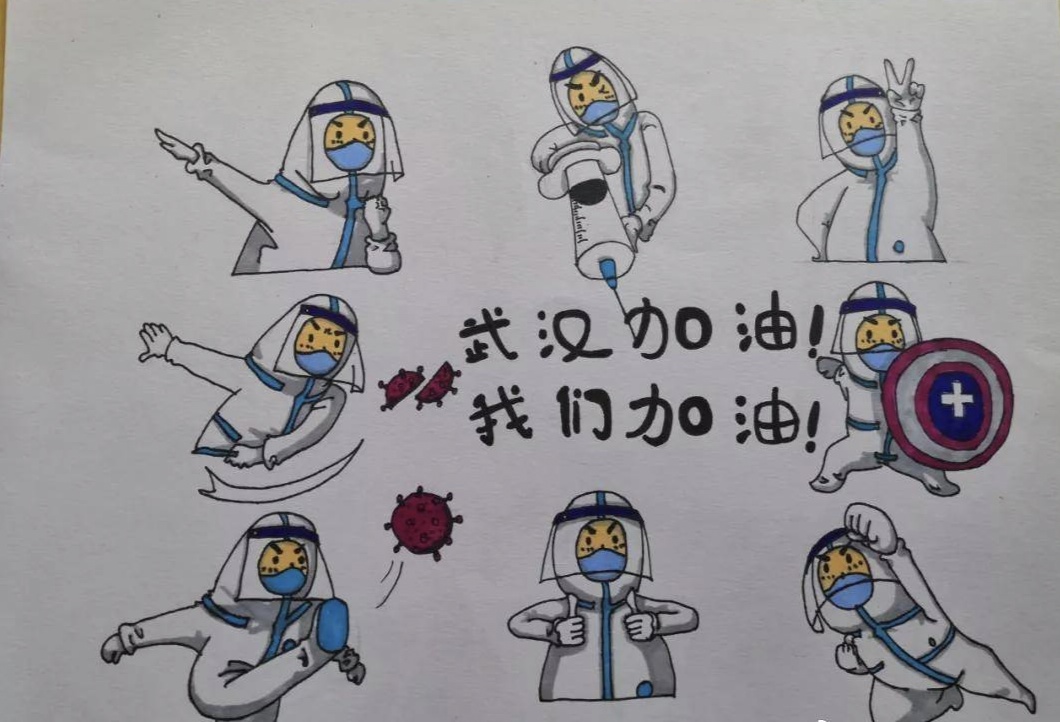 武汉加油!
我们加油!